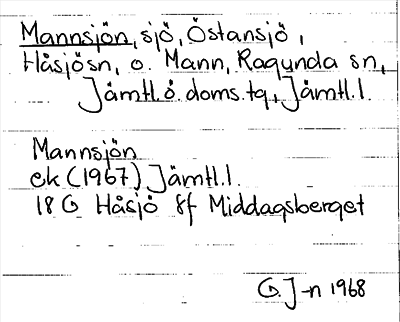 Mannsjön, sjö, Östansjö,
Håsjösn, o. Mann, Ragunda sn,
Jämtl.ö.doms.tg., Jämtl.l.
Mannsjön
ek (1967) Jämtl.l.
18 G Håsjö 8f Middagsberget
G. J-n 1968